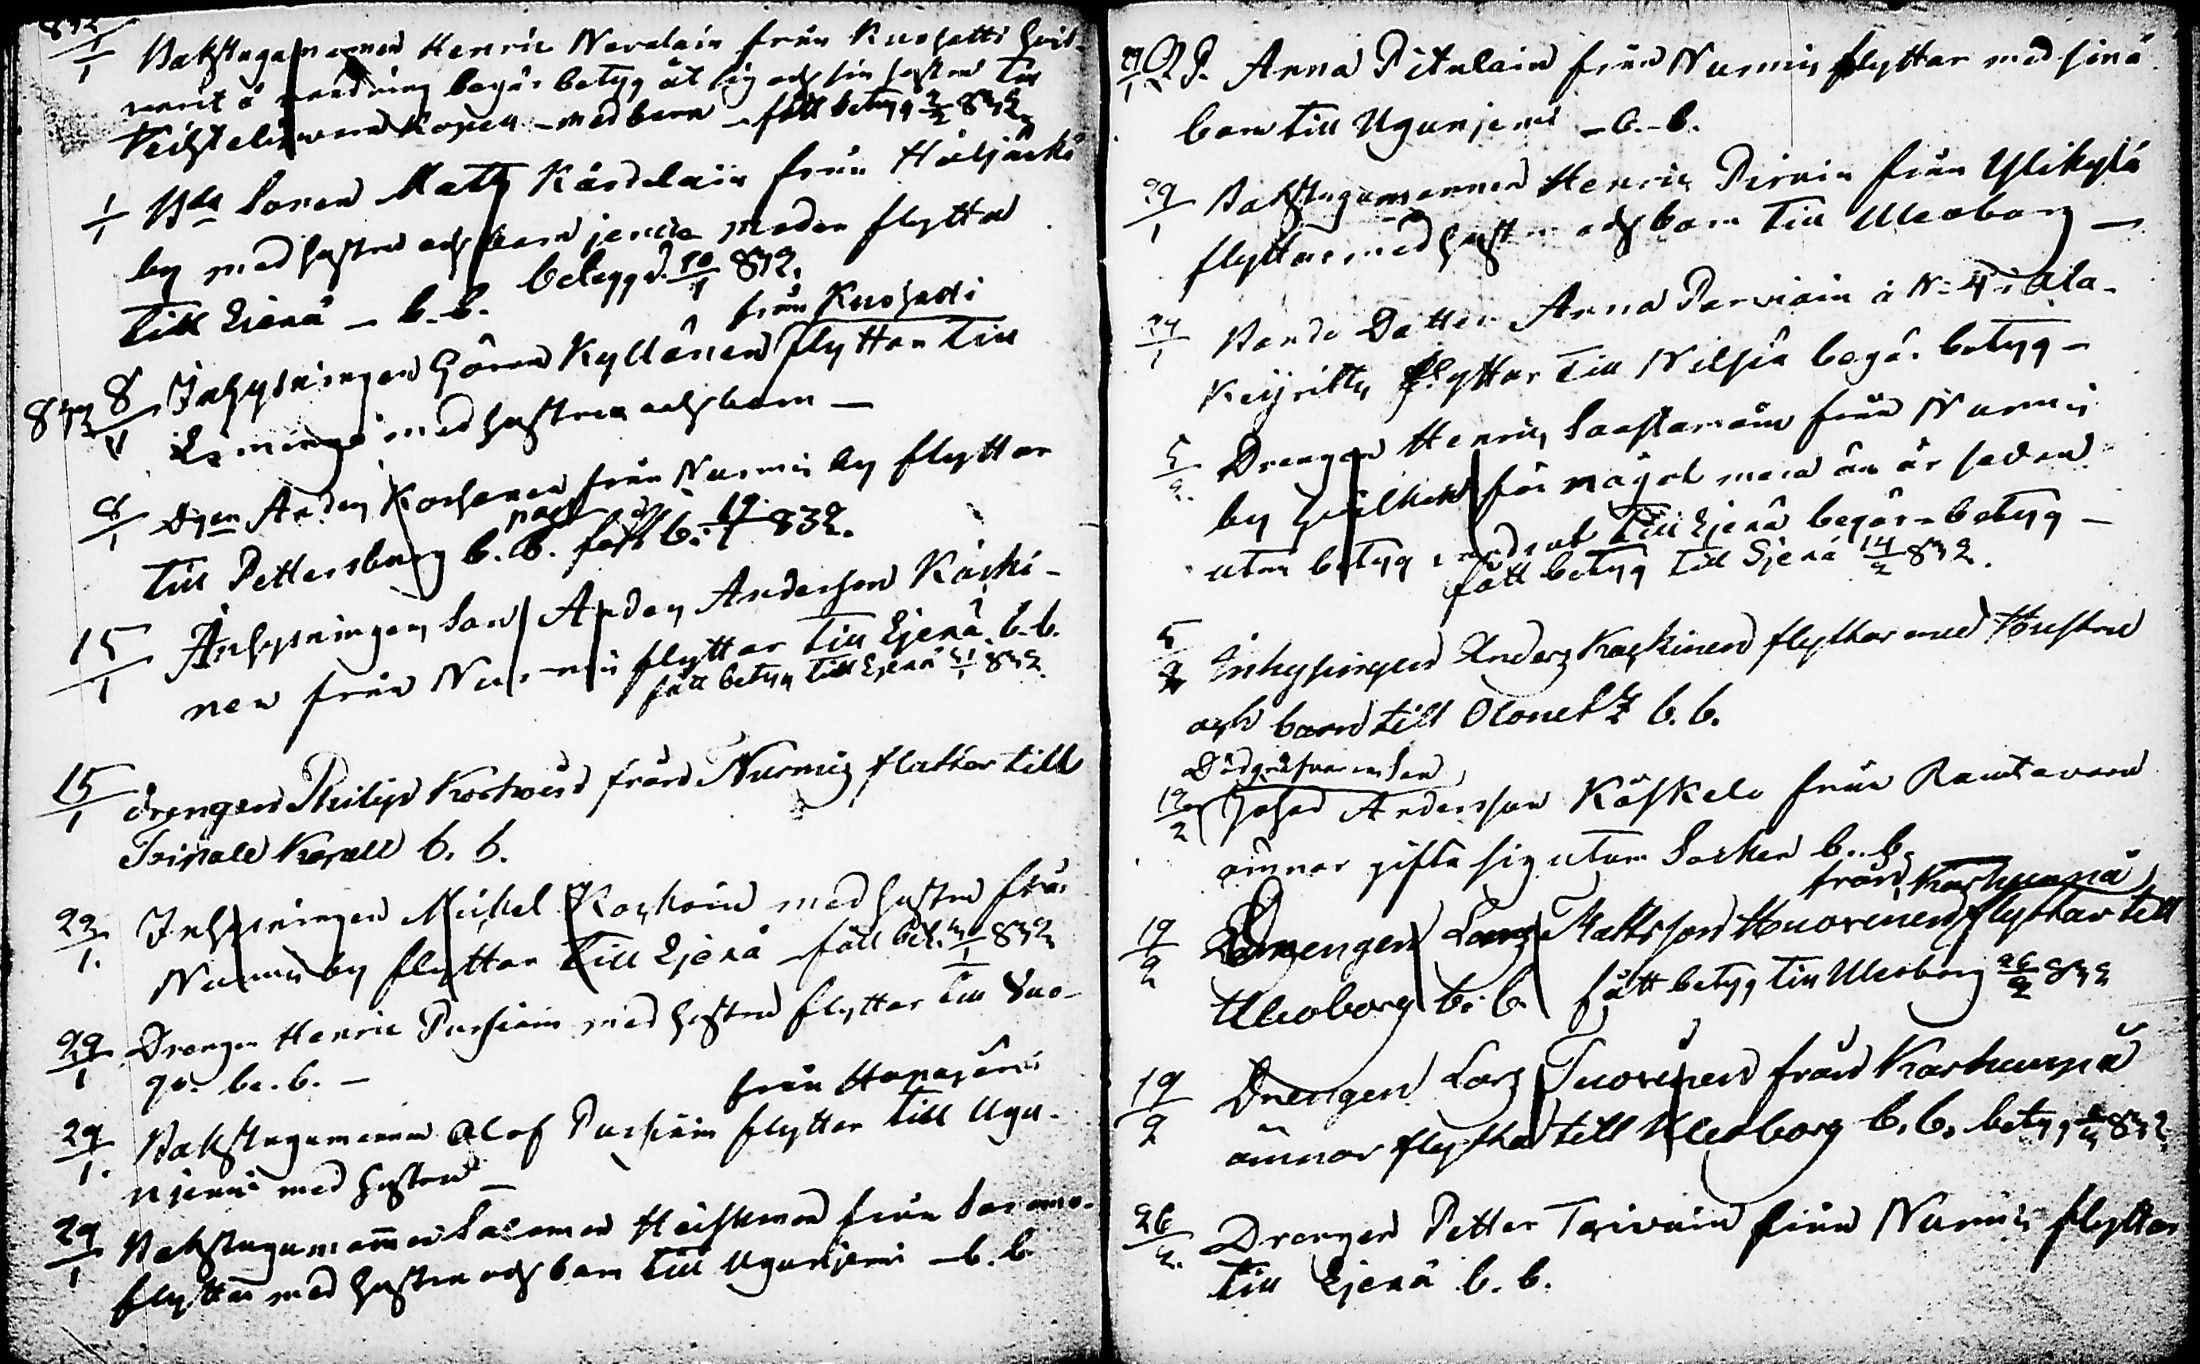 832
1/1 Backstugumannen Henric Nevalain från Kuohatti
varit å vandring begär betyg åt sig och sin hustru till
Kopen med barn - fått betyg 2/2 832
1/1 Bde Sonen Matts Kärelain från Höljäkkä
by med hustru och barn jemte moder flytta
till Ejenä - b. b. betygd. 10/1 832.
från Kuohatti
832 8/1 Inhysningen Göran Kyllönen flyttar till
Liminga med hustru och barn -
8/1 Dgen Anders Korhonen från Nurmis by flyttar
till Pettersburg b. B. pass fått b. 19/1 832.
15/1 Inhysningens Son Anders Andersson Käski-
nen från Nurmis flyttar till Ejenä. b. b.
fått betyg till Ejenä 21/1 832
15/1 drengen Philip Korhoin från Nurmis flyttar till
b. b.
22/1. Inhysningen Michel Korhoin med hustru från
Nurmis by flyttar till Ejenä - fått bet. 832
29/1 Drengen Henric Pursiain med hustru flyttar till Suo-
b. b. -
från Hapajärvi
29/1. Backstugumannen Olof Pursiain flyttar till Ugu-
njemi med hustru -
29/1 Backstugumannen Salomon Heiskanen från Saramo
flyttar med hustru och barn till Ugunjemi - b. b.
29/1 Anna Pitulain från Nurmis flyttar med sina
barn till Ugunjemi - b. b.
29/1 Backstugumannen Henric Pirnin från Ylikylä
flyttar med hustru och barn till Uleoborg -
29/1 Bonde Dotter Anna Parviain å No 4 i Ala-
Keyritty flyttar till Nilsiä begär betyg -
5/2. Drengen Henric Saastamoin från Nurmis
by hvilken för något mera än år sedan
utan betyg vandrat till Ejenä begär betyg -
fått betyg till Ejenä 14/2 832.
5/2 Inhysingen Anders Kaskinen flyttar med Hustru
och barn till Olonetz b. b.
Dödgräfvarens Son
12/2 Johan Andersson Käskelo från Rautavara
ämnar gifta sig utom Socken b. b.
från Karhunpä
19/2 Drengen Lars Mattsson Huovinen flyttar till
Uleoborg b. b. fått betyg till Uleoborg 26/2 832
19/2 Drengen Lars Tuovinen från Karhunpä
ämnar flytta till Uleoborg b. b. betyg 832
26/2. Drengen Petter Toivain från Nurmis flyttar
till Ejenä b. b.